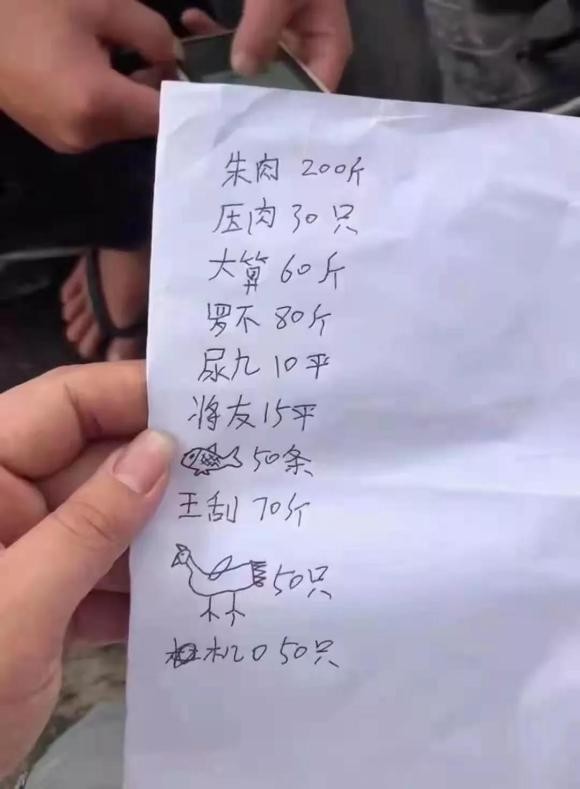 朱肉 200斤
压肉 30只
大算 60斤
罗不 80斤
尿九 10平
将友 15平
50条
王刮 70斤
50只
机口 50只